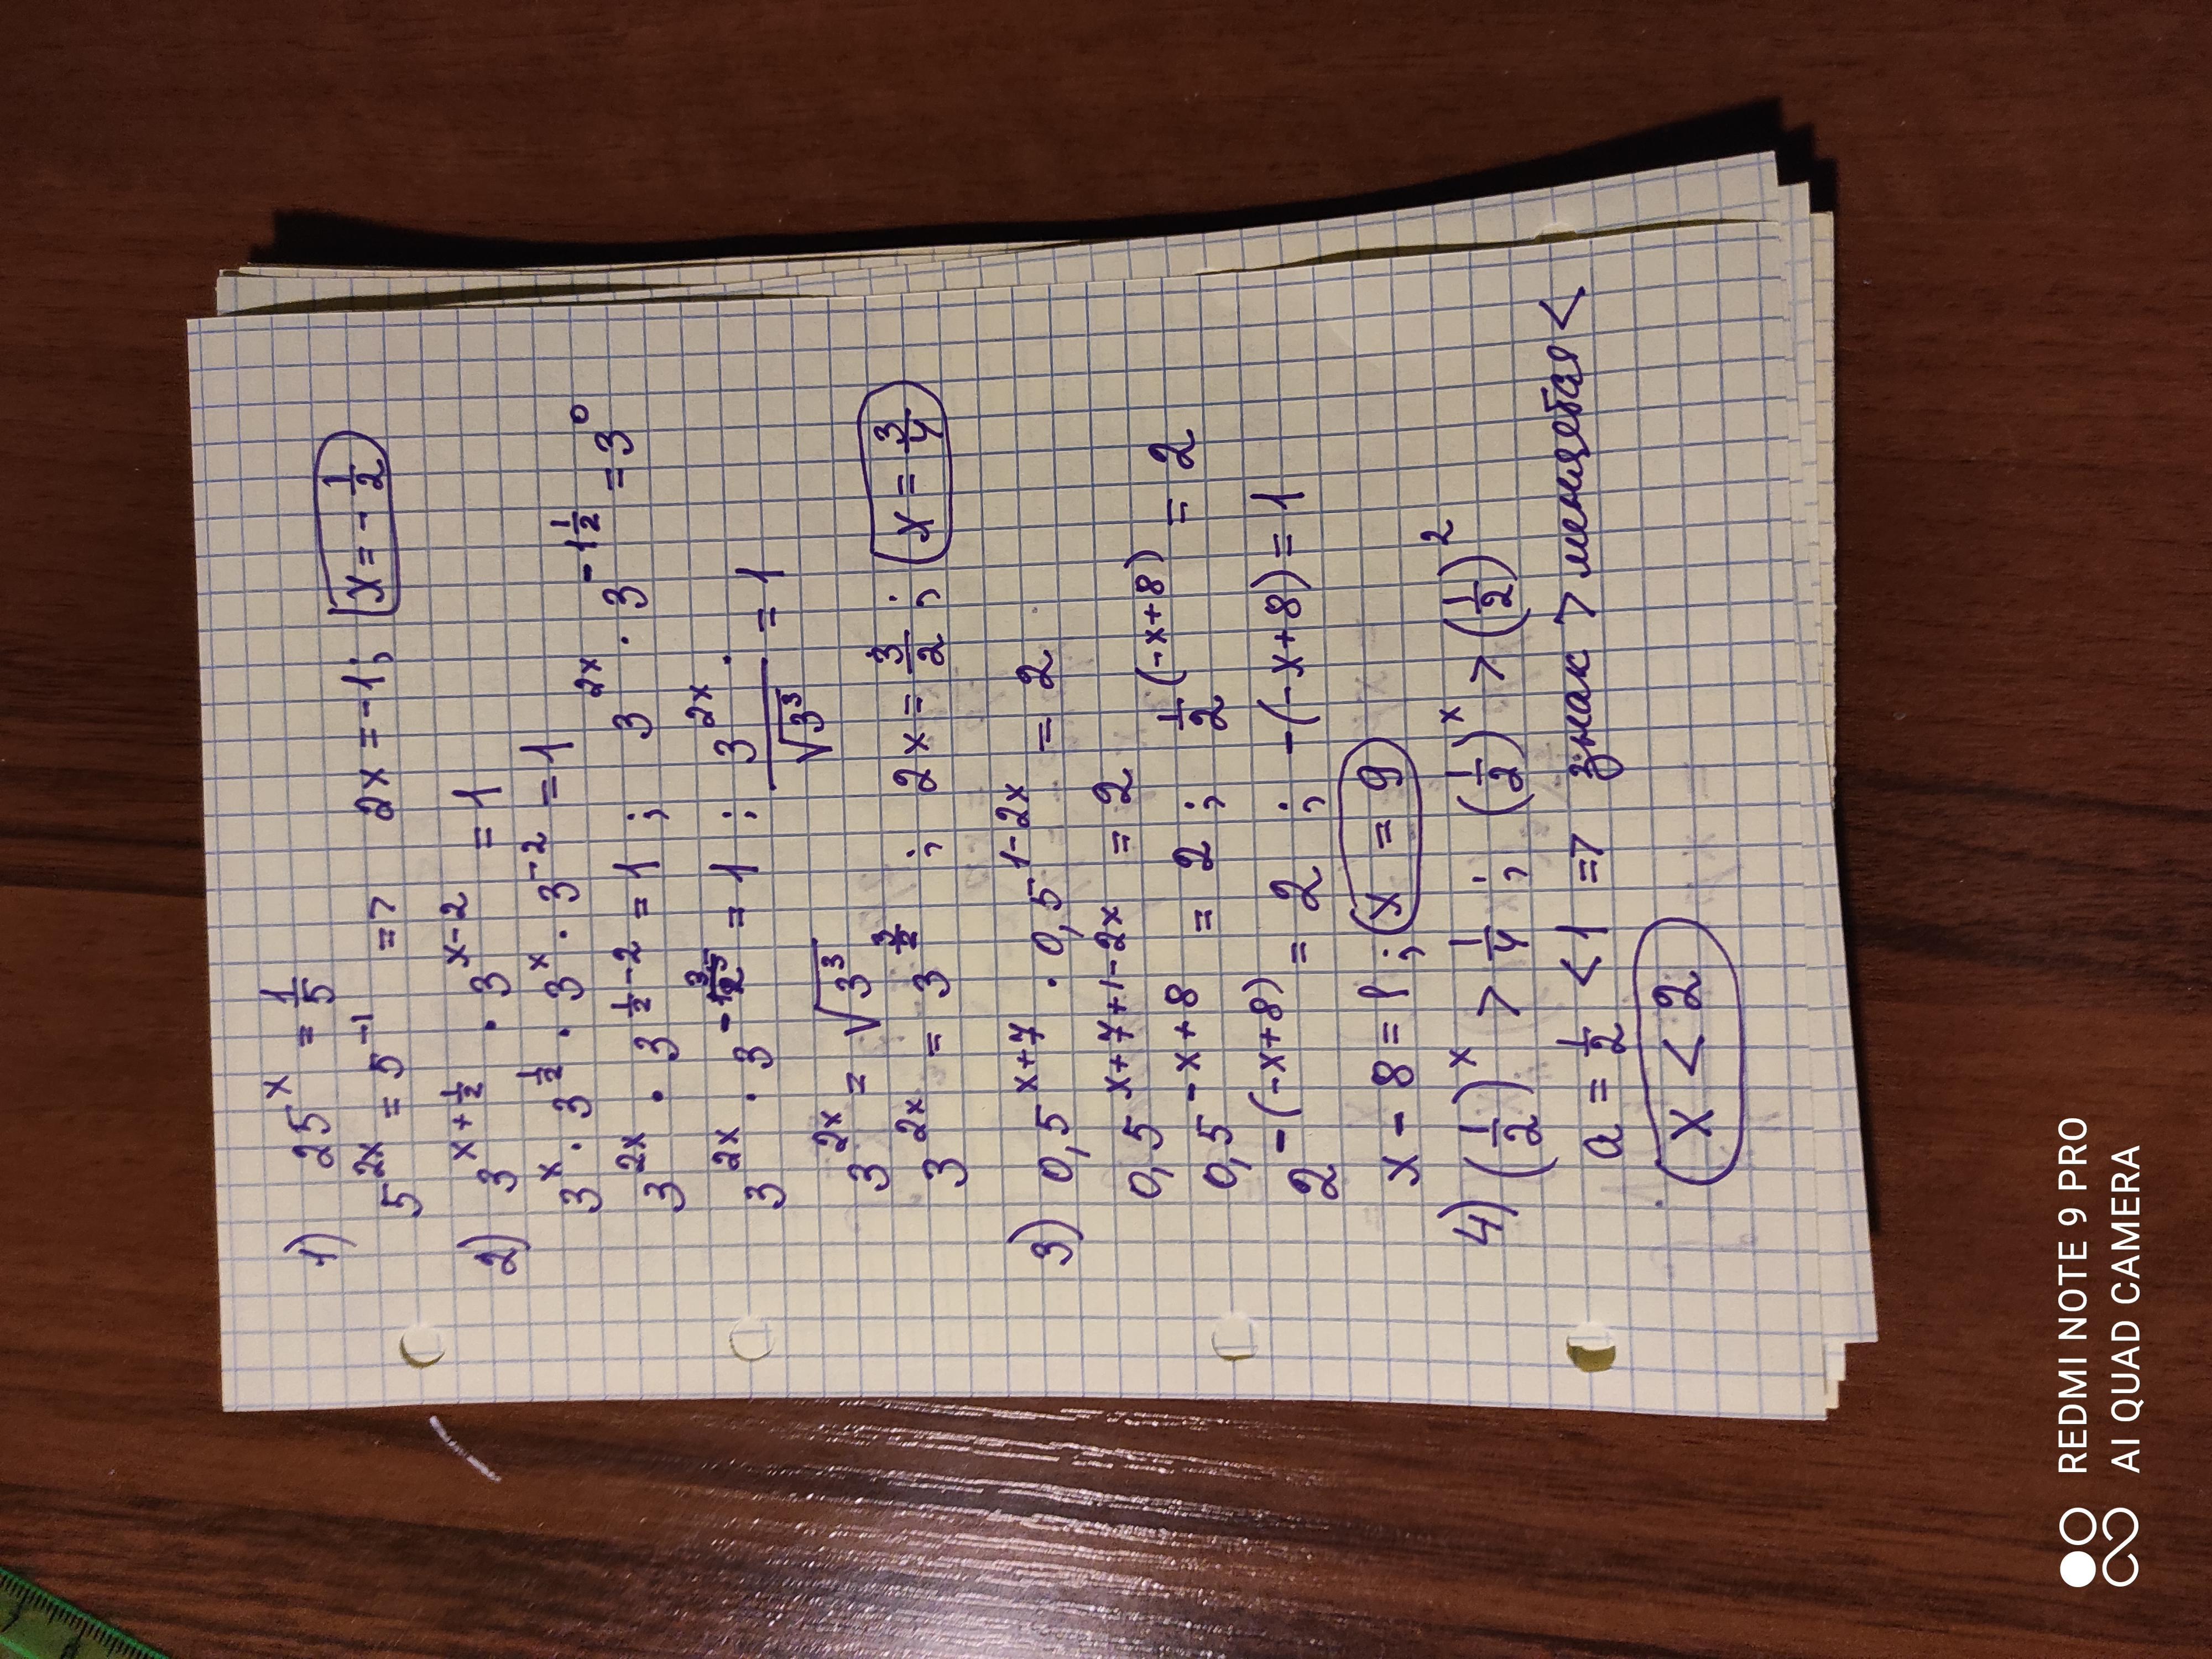 1) 25^x = 1/5
5^2x = 5^-1 => 2x = -1; x = -1/2
2) 3^x+1/2 · 3^x-2 = 1
3^x · 3^1/2 · 3^x · 3^-2 = 1
3^2x · 3^1/2-2 = 1; 3^2x · 3^-1 1/2 = 3^0
3^2x · 3^-3/2 = 1; 3^2x / √3^3 = 1
3^2x = √3^3
3^2x = 3^3/2; 2x = 3/2; x = 3/4
3) 0,5^x+7 · 0,5^1-2x = 2
0,5^x+7+1-2x = 2
0,5^-x+8 = 2; 1/2^(-x+8) = 2
2^-(-x+8) = 2; -(-x+8) = 1
x - 8 = 1; x = 9
4) (1/2)^x > 1/4; (1/2)^x > (1/2)^2
a = 1/2 < 1 => знак > меняется <
x < 2
REDMI NOTE 9 PRO
AI QUAD CAMERA